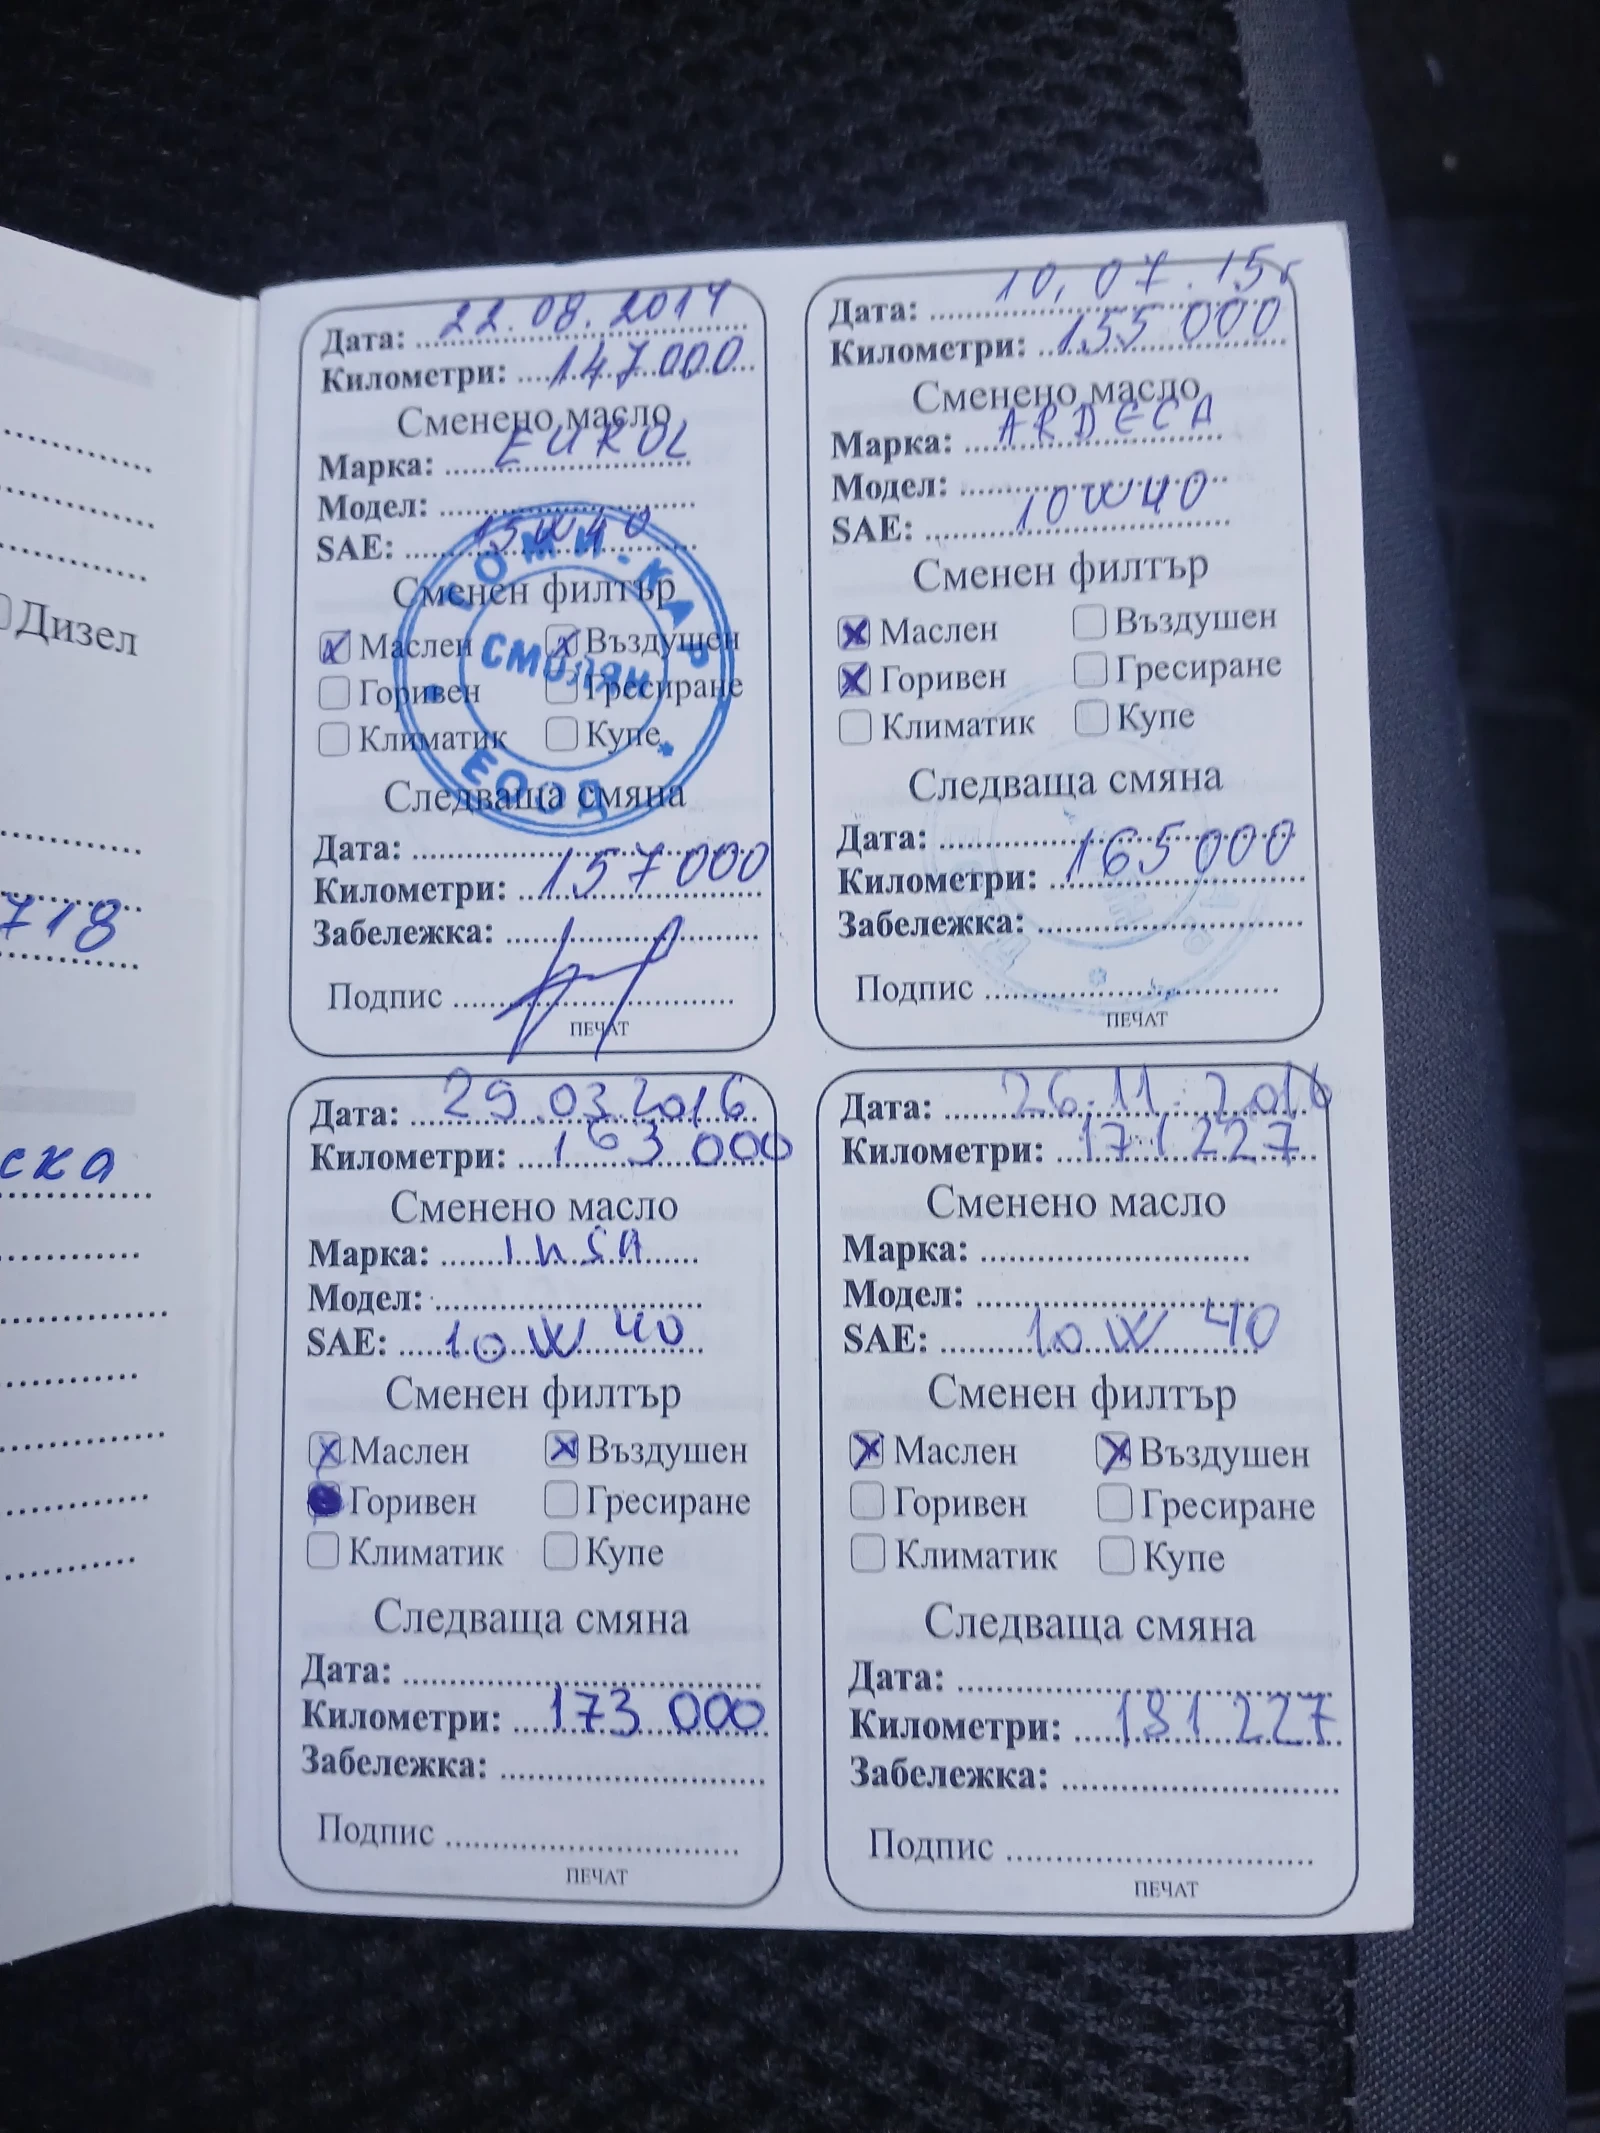 Дизел
718
ска
Дата: 22.08.2014
Километри: 147000
Сменено масло
Марка: EUROL
Модел:
SAE: 15W40
Сменен филтър
Маслен Въздушен
Горивен Гресиране
Климатик Купе
СМОЛЯН
ЕООД
Следваща смяна
Дата:
Километри: 157000
Забележка:
Подпис
ПЕЧАТ
Дата: 10,07.15г
Километри: 155000
Сменено масло
Марка: ARDECA
Модел:
SAE: 10W40
Сменен филтър
Маслен Въздушен
Горивен Гресиране
Климатик Купе
Следваща смяна
Дата:
Километри: 165000
Забележка:
Подпис
ПЕЧАТ
Дата: 29.03.2016
Километри: 163 000
Сменено масло
Марка: INSA
Модел:
SAE: 10 W 40
Сменен филтър
Маслен Въздушен
Горивен Гресиране
Климатик Купе
Следваща смяна
Дата:
Километри: 173 000
Забележка:
Подпис
ПЕЧАТ
Дата: 26.11.2016
Километри: 171 227
Сменено масло
Марка:
Модел:
SAE: 10 W 40
Сменен филтър
Маслен Въздушен
Горивен Гресиране
Климатик Купе
Следваща смяна
Дата:
Километри: 181 227
Забележка:
Подпис
ПЕЧАТ